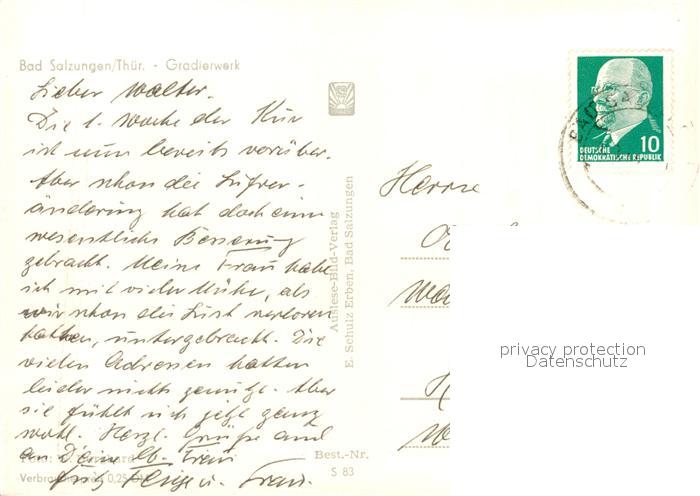 Bad Salzungen/Thür. - Gradierwerk
Lieber Walter.
Die 1. Woche der Kur
ist nun bereits vorüber.
Aber schon die Luftver-
änderung hat doch eine
wesentliche Besserung
gebracht. Meine Frau habe
ich mit vieler Mühe, als
wir schon die Lust verloren
hatten, untergebracht. Die
vielen Adressen hatten
leider nichts genützt. Aber
sie fühlt sich jetzt ganz
wohl. Herzl. Grüße auch
an Deine lb. Frau
Fritz u. Frau.
Verbraucherpreis 0,25 DM
Auslese-Bild-Verlag
E. Schulz Erben, Bad Salzungen
Best.-Nr.
S 83
DEUTSCHE
DEMOKRATISCHE REPUBLIK
10
BAD
Herrn
privacy protection
Datenschutz